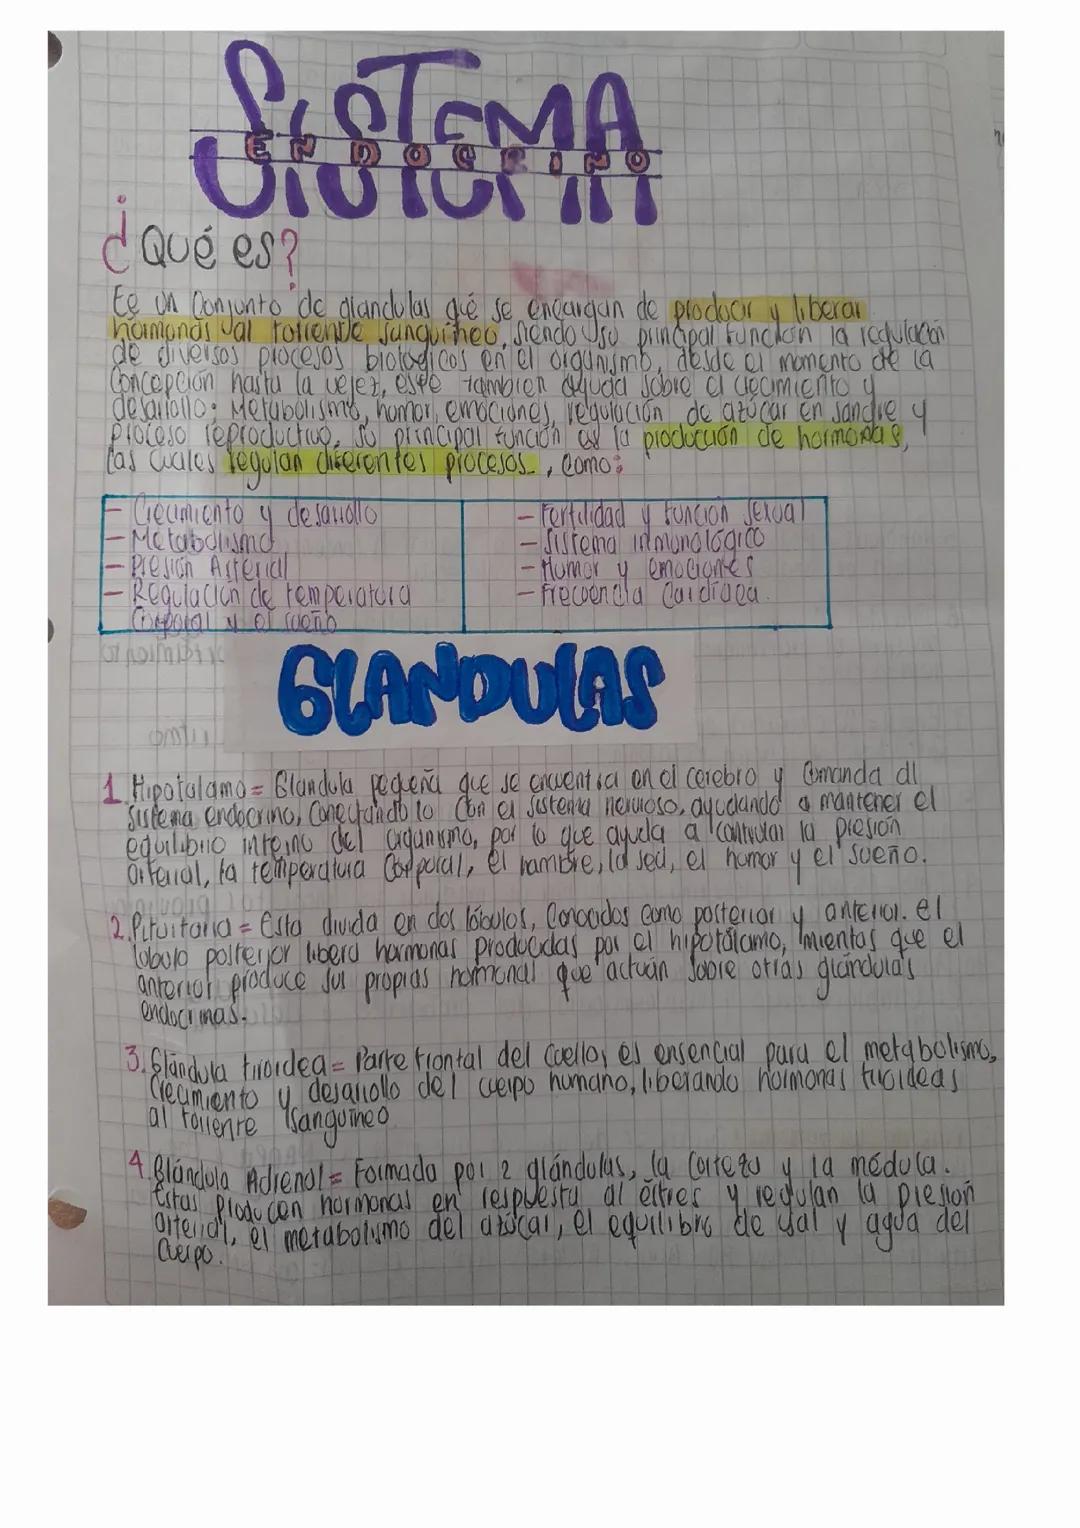 SISTEMA
ENDOCRINO
¿Qué es?
Es un Conjunto de glandulas qué se encargan de producir y liberar
hormonas al torrente sanguíneo, siendo su principal función la regulación
de diversos procesos biologicos en el organismo, desde el momento de la
Concepción hasta la vejez, este tambien ayuda sobre el crecimiento y
desarrollo: Metabolismo, humor, emociones, regulación de azúcar en sangre y
proceso reproductivo, su principal función es la producción de hormonas,
las cuales regulan diferentes procesos, como:
- Crecimiento y desarrollo
- Metabolismo
- Presión Arterial
- Regulación de temperatura
Corporal y el sueño
- Fertilidad y función sexual
- Sistema inmunológico
- Humor y emociones
- Frecuencia Cardíaca.
GLANDULAS
1. Hipotalamo = Glandula pequeña que se encuentra en el cerebro y Comanda al
sistema endocrino, Conectandolo Con el sistema nervioso, ayudando a mantener el
equilibrio interno del organismo, por lo que ayuda a controlar la presión
arterial, la temperatura Corporal, el hambre, la sed, el humor y el sueño.
2. Pituitaria = Esta divida en dos lóbulos, Conocidos como posterior y anterior. el
lobulo posterior libera hormonas producidas por el hipotálamo, mientas que el
anterior produce sus propias hormonas que actuan sobre otras glándulas
endocrinas.
3. Glándula tiroidea = Parte frontal del Cuello, es ensencial para el metabolismo,
Crecimiento y desarrollo del cuerpo humano, liberando hormonas tiroideas
al torrente sanguíneo
4. Glándula Adrenal = Formada por 2 glándulas, la Corteza y la médula.
Estas producen hormonas en respuesta al estres y regulan la presion
arterial, el metabolismo del azúcar, el equilibro de sal y agua del
Cuerpo.